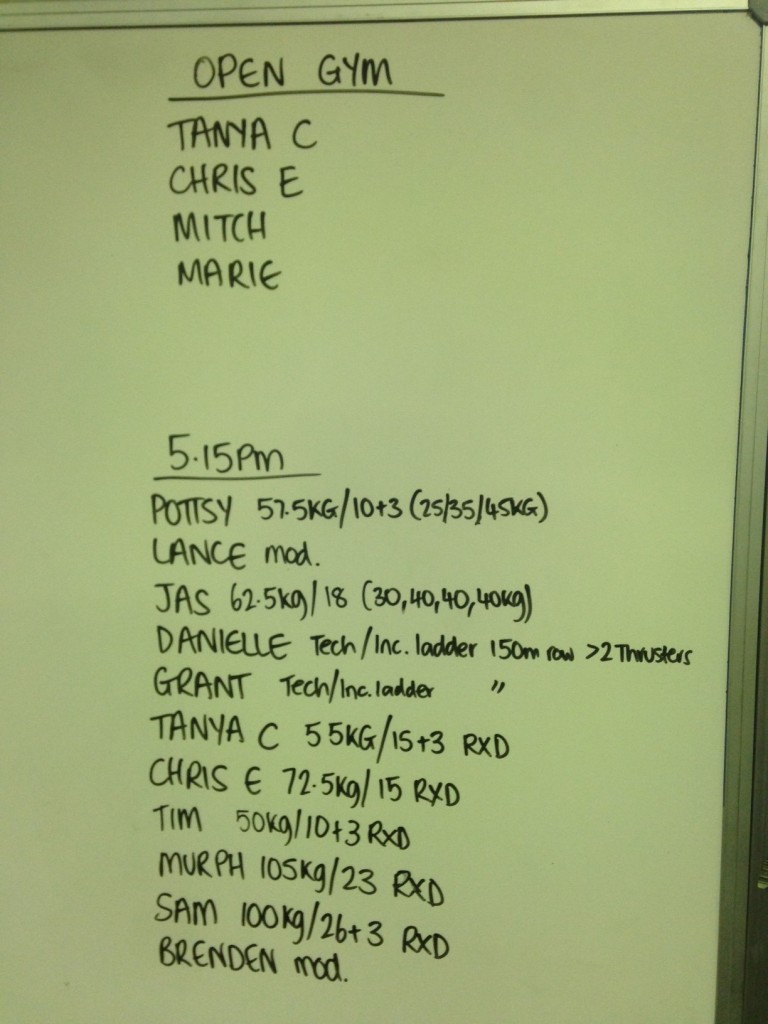 OPEN GYM
TANYA C
CHRIS E
MITCH
MARIE
5.15pm
POTTSY 57.5KG/10+3 (25/35/45KG)
LANCE mod.
JAS 62.5kg/18 (30,40,40,40kg)
DANIELLE Tech/Inc. ladder 150m row >2 Thrusters
GRANT Tech/Inc. ladder "
TANYA C 55KG/15+3 RXD
CHRIS E 72.5kg/15 RXD
TIM 50kg/10+3 RXD
MURPH 105kg/23 RXD
SAM 100kg/26+3 RXD
BRENDEN mod.